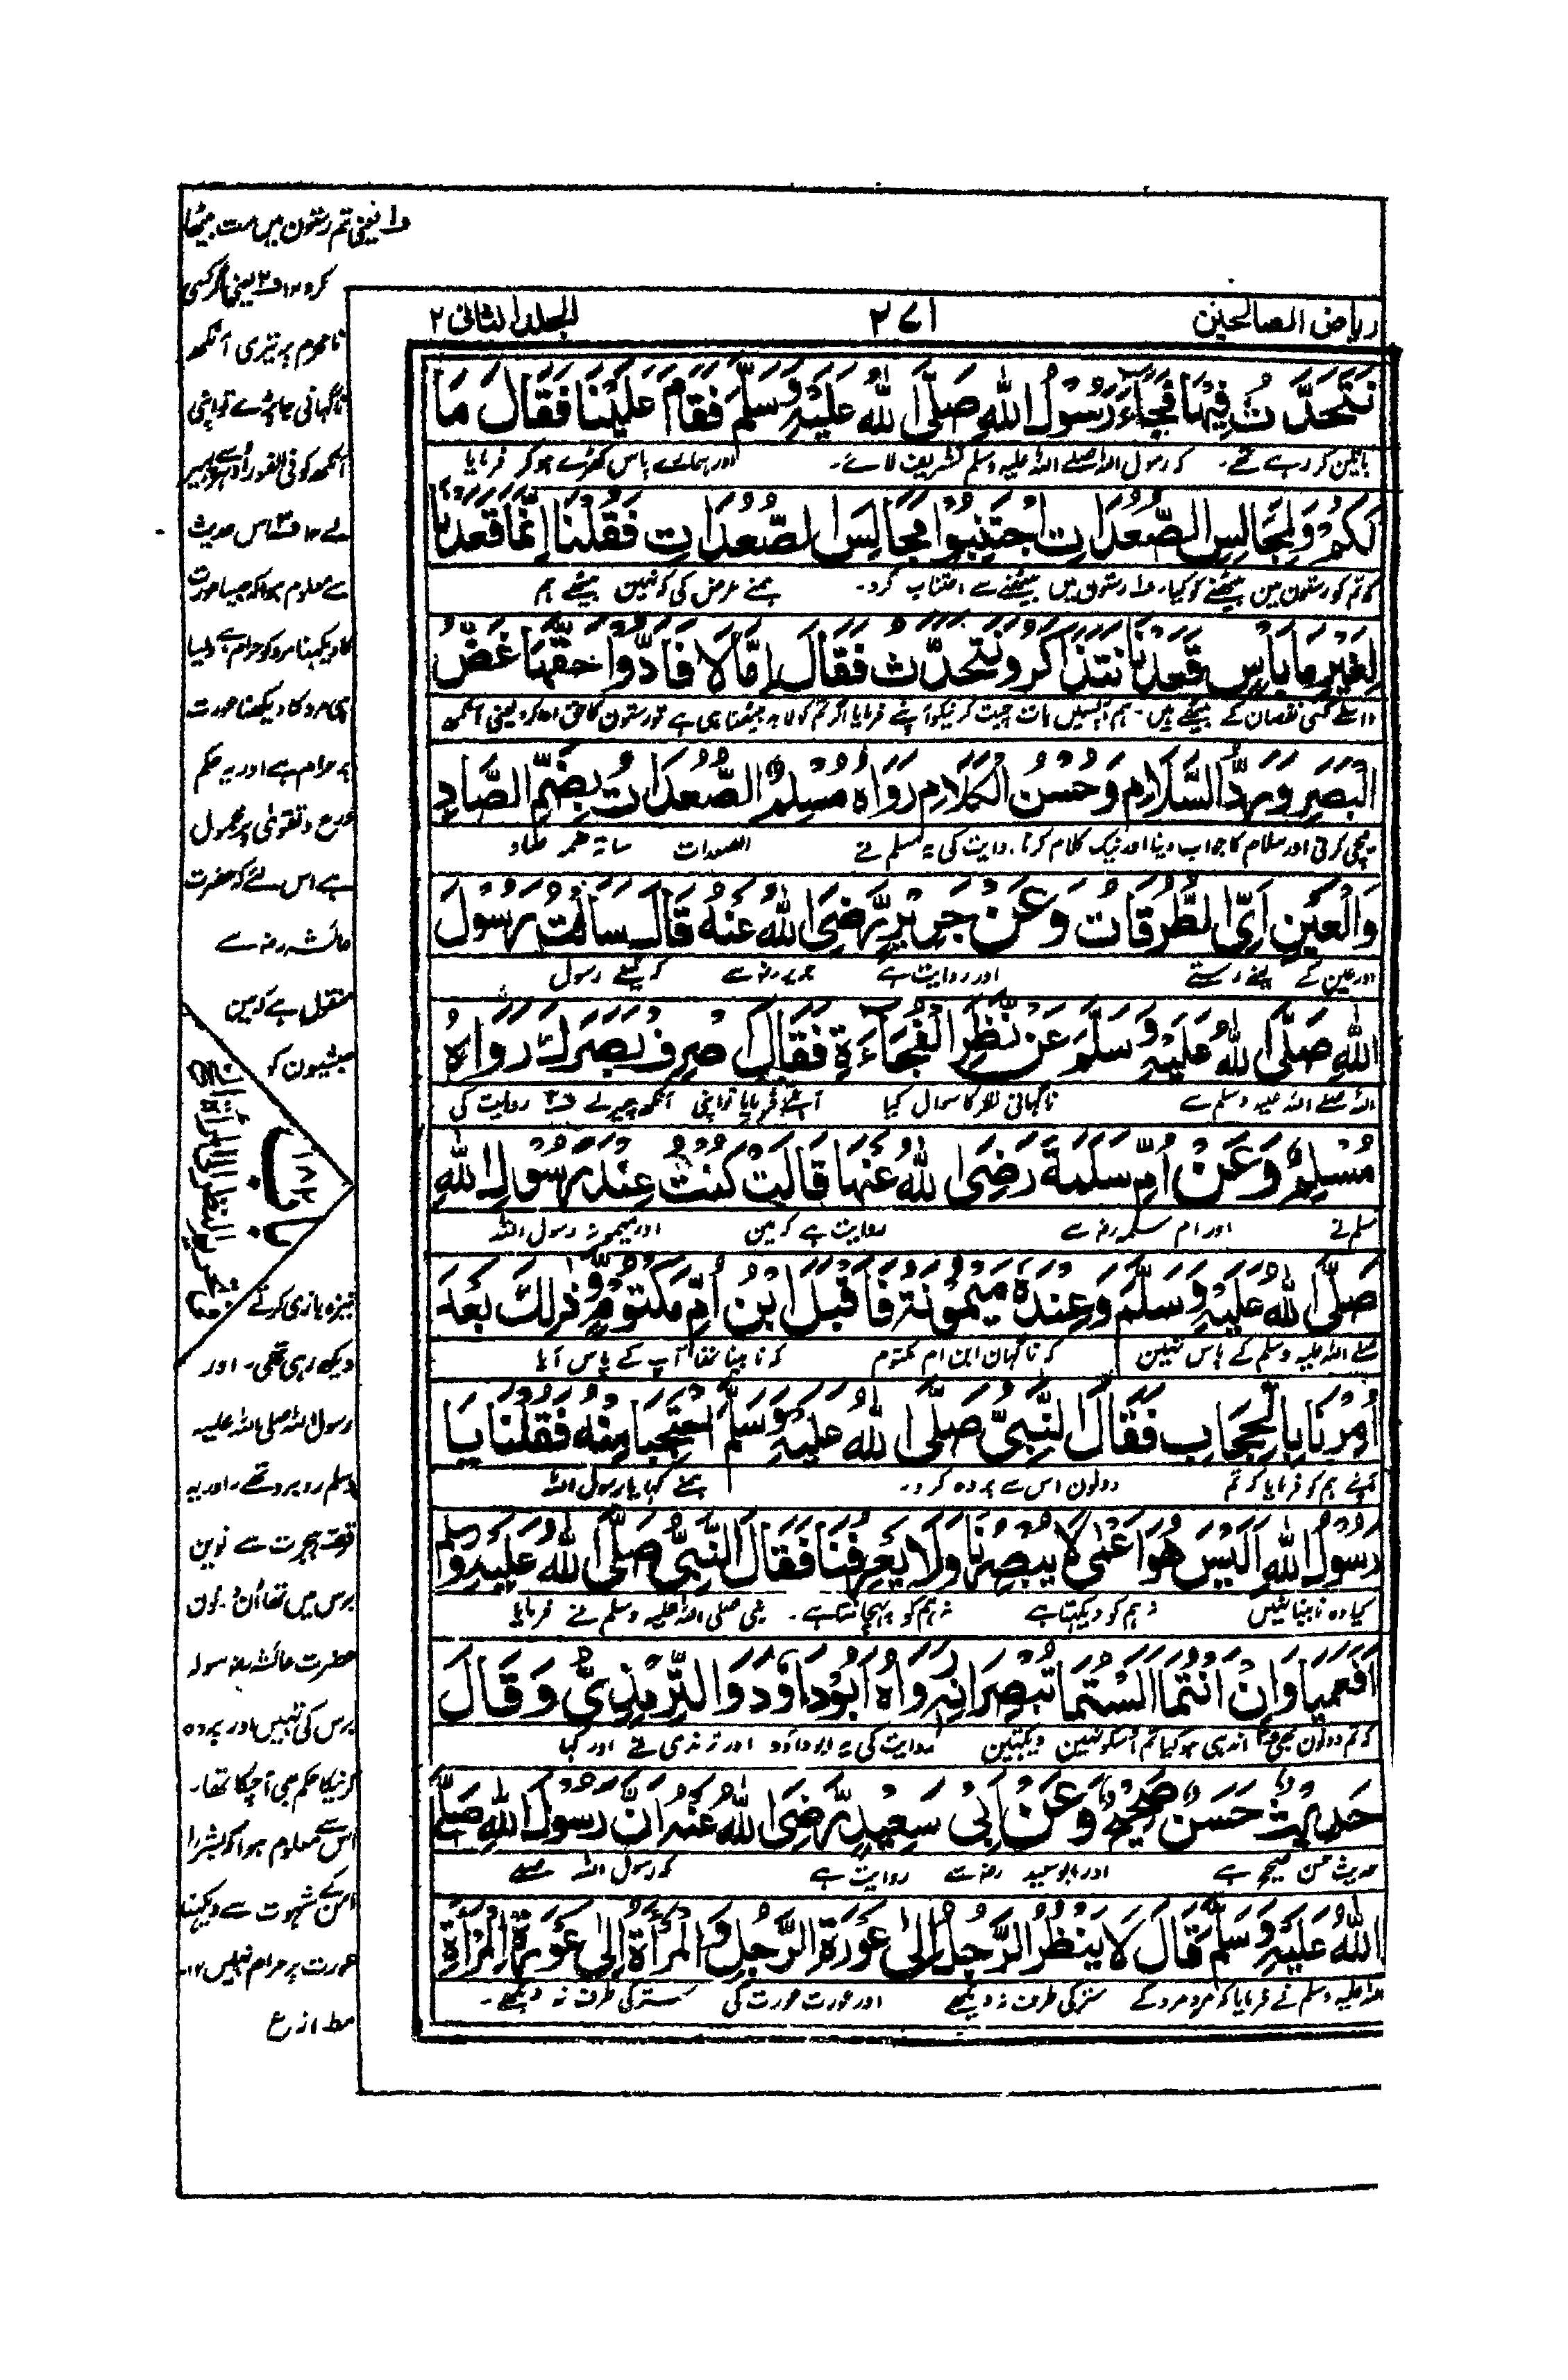 ریاض الصالحین ۲۷۱ الجلد الثانی ۲
نَتَحَدَّثُ فِیْهَا فَجَاءَ رَسُوْلُ اللّٰهِ صَلَّی اللّٰهُ عَلَیْهِ وَسَلَّمَ فَقَامَ عَلَیْنَا فَقَالَ مَا
باتین کر رہے تھے۔ کہ رسول اللہ صلے اللہ علیہ وسلم تشریف لائے۔ اور ہمارے پاس کھڑے ہوکر فرمایا
لَكُمْ وَلِمَجَالِسِ الصُّعُدَاتِ اجْتَنِبُوْا مَجَالِسَ الصُّعُدَاتِ فَقُلْنَا اِنَّمَا قَعَدْنَا
کہ تم کو رستون مین بیٹھنے کو کیا۔ ف۱ رستوں میں بیٹھنے سے اجتناب کرو۔ ہمنے عرض کی کہ نہین بیٹھے ہم
لِغَیْرِ مَا بَاْسٍ قَعَدْنَا نَتَذَاكَرُ وَنَتَحَدَّثُ فَقَالَ اِمَّا لَا فَاَدُّوْا حَقَّهَا غَضُّ
واسطے کسی نقصان کے بیٹھے ہیں۔ ہم آپسیں بات چیت کرنیکو آپنے فرمایا اگر تم کو لابد بیٹھنا ہی ہے تو رستون کا حق ادا کرو یعنی آنکھ
الْبَصَرِ وَرَدُّ السَّلَامِ وَحُسْنُ الْكَلَامِ رَوَاهُ مُسْلِمٌ الصُّعُدَاتُ بِضَمِّ الصَّادِ
نیچی کرنی اور سلام کا جواب دینا اور نیک کلام کرنا۔ روایت کی یہ مسلم نے الصعدات ساتھ ضمہ صاد
وَالْعَیْنِ اَیِ الطُّرُقَاتُ وَعَنْ جَرِیْرٍ رَّضِیَ اللّٰهُ عَنْهُ قَالَ سَاَلْتُ رَسُوْلَ
اور عین کے یعنے رستے اور روایت ہے جریر رضہ سے کہ مینے رسول
اللّٰهِ صَلَّی اللّٰهُ عَلَیْهِ وَسَلَّمَ عَنْ نَّظَرِ الْفُجَاءَةِ فَقَالَ اصْرِفْ بَصَرَكَ رَوَاهُ
اللہ صلے اللہ علیہ وسلم سے ناگہانی نظر کا سوال کیا آپنے فرمایا تو اپنی آنکھ پھیر لے ف۲ روایت کی
مُسْلِمٌ وَعَنْ اُمِّ سَلَمَةَ رَضِیَ اللّٰهُ عَنْهَا قَالَتْ كُنْتُ عِنْدَ رَسُوْلِ اللّٰهِ
مسلم نے اور ام سلمہ رضہ سے روایت ہے کہ مین اور میمونہ رسول اللہ
صَلَّی اللّٰهُ عَلَیْهِ وَسَلَّمَ وَعِنْدَهٗ مَیْمُوْنَةُ فَاَقْبَلَ ابْنُ اُمِّ مَكْتُوْمٍ وَّذٰلِكَ بَعْدَ
صلے اللہ علیہ وسلم کے پاس تھین کہ ناگہان ابن ام مکتوم کہ نابینا تھا آپ کے پاس آیا
اُمِرْنَا بِالْحِجَابِ فَقَالَ النَّبِیُّ صَلَّی اللّٰهُ عَلَیْهِ وَسَلَّمَ احْتَجِبَا مِنْهُ فَقُلْنَا یَا
آپنے ہم کو فرمایا کہ تم دونون اس سے پردہ کرو۔ ہمنے کہا یا رسول اللہ
رَسُوْلَ اللّٰهِ اَلَیْسَ هُوَ اَعْمٰی لَا یُبْصِرُنَا وَلَا یَعْرِفُنَا فَقَالَ النَّبِیُّ صَلَّی اللّٰهُ عَلَیْهِ وَسَلَّمَ
کیا وہ نابینا نہیں نہ ہم کو دیکہتا ہے نہ ہم کو پہچانتا ہے۔ نبی صلی اللہ علیہ وسلم نے فرمایا
اَفَعَمْیَاوَانِ اَنْتُمَا اَلَسْتُمَا تُبْصِرَانِهٖ رَوَاهُ اَبُوْ دَاوٗدَ وَالتِّرْمِذِیُّ وَقَالَ
کہ تم دونون بھی اندہی ہو کیا تم اسکو نہین دیکہتین روایت کی یہ ابو داؤد اور ترمذی نے اور کہا
حَدِیْثٌ حَسَنٌ صَحِیْحٌ وَعَنْ اَبِیْ سَعِیْدٍ رَّضِیَ اللّٰهُ عَنْهُ اَنَّ رَسُوْلَ اللّٰهِ صَلَّی
حدیث حسن صحیح ہے اور ابو سعید رضہ سے روایت ہے کہ رسول اللہ صلے
اللّٰهُ عَلَیْهِ وَسَلَّمَ قَالَ لَا یَنْظُرُ الرَّجُلُ اِلٰی عَوْرَةِ الرَّجُلِ وَلَا الْمَرْاَةُ اِلٰی عَوْرَةِ الْمَرْاَةِ
اللہ علیہ وسلم نے فرمایا کہ مرد مرد کے ستر کی طرف نہ دیکھے اور عورت عورت کی ستر کی طرف نہ دیکھے۔
ف۱ یعنی تم رستون میں مت بیٹھا
کرو ۱۲ ف۲ یعنی اگر کسی
نامحرم پر تیری آنکھ
ناگہانی جا پڑے تو اپنی
آنکھ کو فی الفور اُدہر سے پھیر
لے ۱۲ ف۳ اس حدیث
سے معلوم ہوا کہ جیسا عورت
کا دیکہنا مرد کو حرام ہے ویسا
ہی مرد کا دیکھنا عورت
پر حرام ہے اور یہ حکم
ورع و تقویٰ پر محمول
ہے اس لئے کہ حضرت
عائشہ رضہ سے
منقول ہے کہ مین
حبشیون کو
باب ۱۸۲
نیزہ بازی کرتے
دیکھ رہی تھی۔ اور
رسول اللہ صلی اللہ علیہ
وسلم روبرو تھے۔ اور یہ
قصہ ہجرت سے نوین
برس میں تھا اُن دنون
حضرت عائشہ رضہ سولہ
برس کی تہیں اور پردہ
کرنیکا حکم بھی آچکا تھا۔
اس سے معلوم ہوا کہ بشرط
امن کے شہوت سے دیکہنا
عورت پر حرام نہیں ۱۲۔